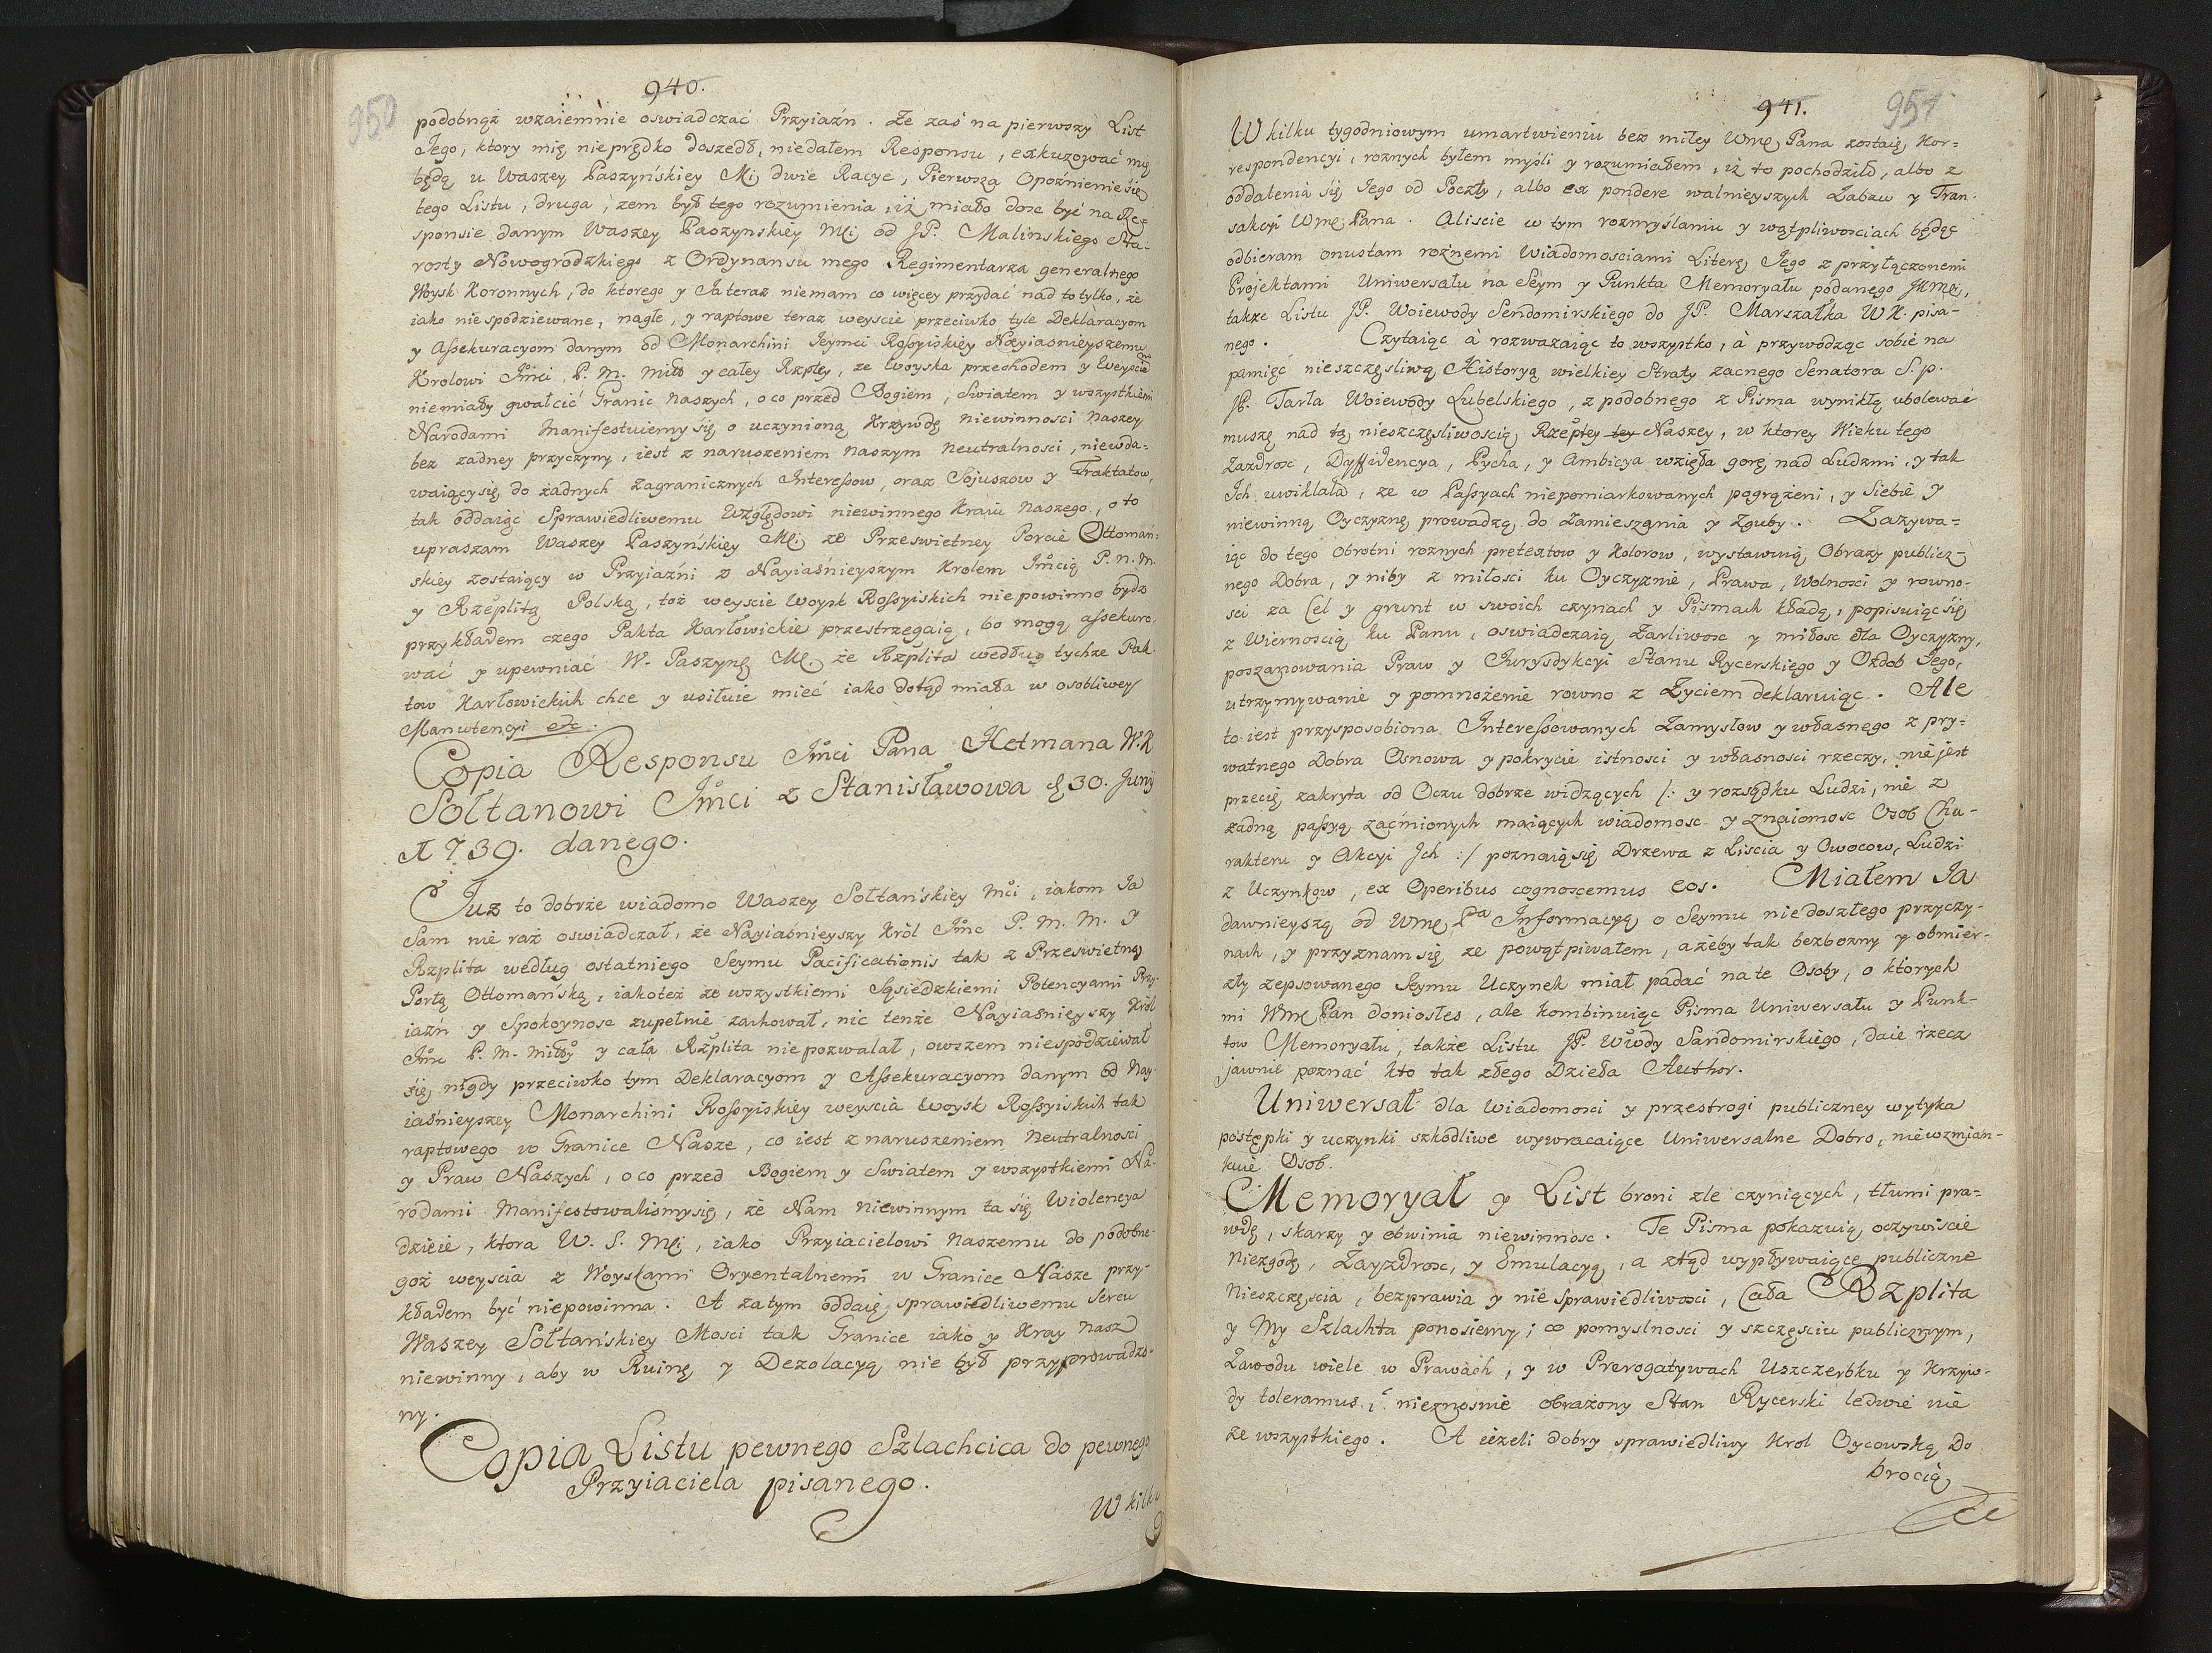 940.
950
podobnąż wzaiemnie oswiadczać Przyiaźn. Ze zaś na pierwszy List
Jego, ktory mię nieprędko doszedł, niedałem Responsu, exkuzować mię
będą u Waszey Paszyńskiey Mci dwie Racye, Pierwsza Opoźnienie się
tego Listu, druga, zem był tego rozumienia, iż miało dosc być na Re-
sponsie danym Waszey Paszynskiey Mci od JP. Malinskiego Sta-
rosty Nowogrodzkiego z Ordynansu mego Regimentarza generalnego
Woysk Koronnych, do ktorego y Ja teraz niemam co więcey przydać nad to tylko, że
iako niespodziewane, nagłe, y raptowe teraz weyscie przeciwko tyle Deklaracyom
y Assekuracyom danym od Monarchini Jeymci Rossyiskiey Nayiasnieyszemu
Krolowi Jmci P. M. Miłł y całey Rzptey, ze Woyska przechodem y Weyściem
niemiały gwałcić Granic Naszych, o co przed Bogiem, Swiatem y wszystkiemi
Narodami Manifestuiemy się o uczynioną Krzywdę niewinnosci Naszey
bez zadney przyczyny, iest z naruszeniem Naszym Neutralnosci, niewda-
waiący się do żadnych Zagranicznych Interessow, oraz Sojuszow y Traktatow,
tak oddaiąc Sprawiedliwemu Względowi niewinnego Kraiu Naszego, o to
upraszam Waszey Paszyńskiey Mci ze Przeswietney Porcie Ottomań-
skiey zostaiący w Przyiaźni z Nayiaśnieyszym Krolem Jmcią P. N. M.
y Rzeplitą Polską, toż weyscie Woysk Rossyiskich niepowinno bydz
przykładem czego Pakta Karłowickie przestrzegaią, bo mogą assekuro-
wać y upewniać W. Paszynę Mc. że Rzplita według tychze Pak-
tow Karłowickich chce y usiłuie mieć iako dotąd miała w osobliwey
Manutencyi etc.
Copia Responsu Jmci Pana Hetmana W. K
Sołtanowi Jmci z Stanisławowa d 30. Junij
A 739. danego.
Juz to dobrze wiadomo Waszey Sołtańskiey Mci, iakom Ja
Sam nie raz oswiadczał, że Nayiaśnieyszy Król Jmc P. M. M. y
Rzplita według ostatniego Seymu Pacificationis tak z Przeswietną
Portą Ottomańską, iakoteż ze wszystkiemi Sąsiedzkiemi Potencyami Przy-
iaźń y Spokoynosc zupełnie zachował, nic tenże Nayiaśnieyszy Król
Jmc P. M. Miłłby y cała Rzplita niepozwalał, owszem niespodziewał
się nigdy przeciwko tym Deklaracyom y Assekuracyom danym od Nay-
iaśnieyszey Monarchini Rossyiskiey weyscia Woysk Rossyiskich tak
raptowego w Granice Nasze, co iest z naruszeniem Neutralnosci
y Praw Naszych, o co przed Bogiem y Swiatem y wszystkiemi Na-
rodami Manifestowaliśmysię, że Nam niewinnym ta się Wiolencya
dzieie, ktora W. S. Mci, iako Przyiacielowi Naszemu do podobne-
goż weyscia z Woyskami Oryentalnemi w Granice Nasze przy-
kładem być niepowinna. A zatym oddaię sprawiedliwemu Sercu
Waszey Sołtańskiey Mosci tak Granice iako y Kray Nasz
niewinny, aby w Ruinę y Dezolacyą nie był przyprowadzo-
ny.
Copia Listu pewnego Szlachcica do pewnego
Przyiaciela pisanego.
W kilku
941.
951
W kilku tygodniowym umartwieniu bez miłey Wmę Pana zostaię Kor-
respondencyi, roznych byłem myśli y rozumiałem, iż to pochodziło, albo z
oddalenia się Jego od Poczty, albo ex pondere walnieyszych Zabaw y Tran-
sakcyi Wmę Pana. Aliscie w tym rozmyślaniu y wątpliwosciach będąc
odbieram onustam rożnemi Wiadomosciami Literę Jego z przyłączonemi
Projektami Uniwersału na Seym y Punkta Memoryału podanego JKMci,
takze Listu JP. Woiewody Sendomirskiego do JP. Marszałka WK. pisa-
nego. Czytaiąc à rozwazaiąc to wszystko, à przywodząc sobie na
pamięć nieszczęsliwą Historyą wielkiey Straty zacnego Senatora S. p.
JP. Tarła Woiewody Lubelskiego, z podobnego z Pisma wynikłą ubolewać
muszę nad tą nieszczęsliwoscią Rzeptey tey Naszey, w ktorey Wieku tego
Zazdrosc, Dyffidencya, Pycha, y Ambicya wzięła gorę nad Ludzmi, y tak
Ich uwikłała, ze w Passyach niepomiarkowanych pogrążeni, y Siebie y
niewinną Oyczyznę prowadzą do Zamieszania y Zguby. Zazywa-
iąc do tego obrotni roznych pretextow y Kolorow, wystawuią Obrazy publicz-
nego Dobra, y niby z miłosci ku Oyczyznie, Prawa, Wolnosci y rowno-
sci za Cel y grunt w swoich czynach y Pismach kładą, popisuiąc się
z Wiernoscią ku Panu, oswiadczaią Zarliwosc y miłosc dla Oyczyzny,
poszanowania Praw y Jurysdykcyi Stanu Rycerskiego y Ozdob Jego,
utrzymywanie y pomnożenie rowno z Zyciem deklaruiąc. Ale
to iest przysposobiona Interessowanych Zamysłow y własnego z pry-
watnego Dobra Osnowa y pokrycie istnosci y własnosci rzeczy, nie jest
przecię zakryta od Oczu dobrze widzących /: y rozsądku Ludzi, nie z
żadną passyą zaćmionych maiących wiadomosc y znaiomosc Osob Cha-
rakteru y Akcyi Jch :/ poznaią się Drzewa z Liscia y Owocow, Ludzi
z Uczynkow, ex Operibus cognoscemus eos. Miałem Ja
dawnieyszą od Wmę Pa Informacyą o Seymu niedoszłego przyczy-
nach, y przyznam się ze powątpiwałem, ażeby tak bezbozny y obmier-
zły zepsowanego Seymu Uczynek miał padać na te Osoby, o ktorych
mi Wmę Pan doniosłes, ale kombinuiąc Pisma Uniwersału y Punk-
tow Memoryału, także Listu JP. Wwody Sandomirskiego, daie rzecz
jawnie poznać kto tak złego Dzieła Author.
Uniwersał dla Wiadomosci y przestrogi publiczney wytyka
postępki y uczynki szkodliwe wywracaiące Uniwersalne Dobro, niewzmian-
kuie Osob.
Memoryał y List broni zle czyniących, tłumi pra-
wdę, skarzy y obwinia niewinnosc. Te Pisma pokazuią oczywiscie
Niezgodę, Zayzdrosc, y Emulacyą, a ztąd wypływaiące publiczne
Nieszczęscia, bezprawia y niesprawiedliwosci, Cała Rzplita
y My Szlachta ponosiemy; co pomyslnosci y szczęsciu publicznym,
Zawodu wiele w Prawach, y w Prerogatywach Uszczerbku y Krzyw-
dy toleramus, i nieznosnie obrażony Stan Rycerski ledwie nie
ze wszystkiego. A ieżeli dobry sprawiedliwy Krol Oycowską Do
brocią